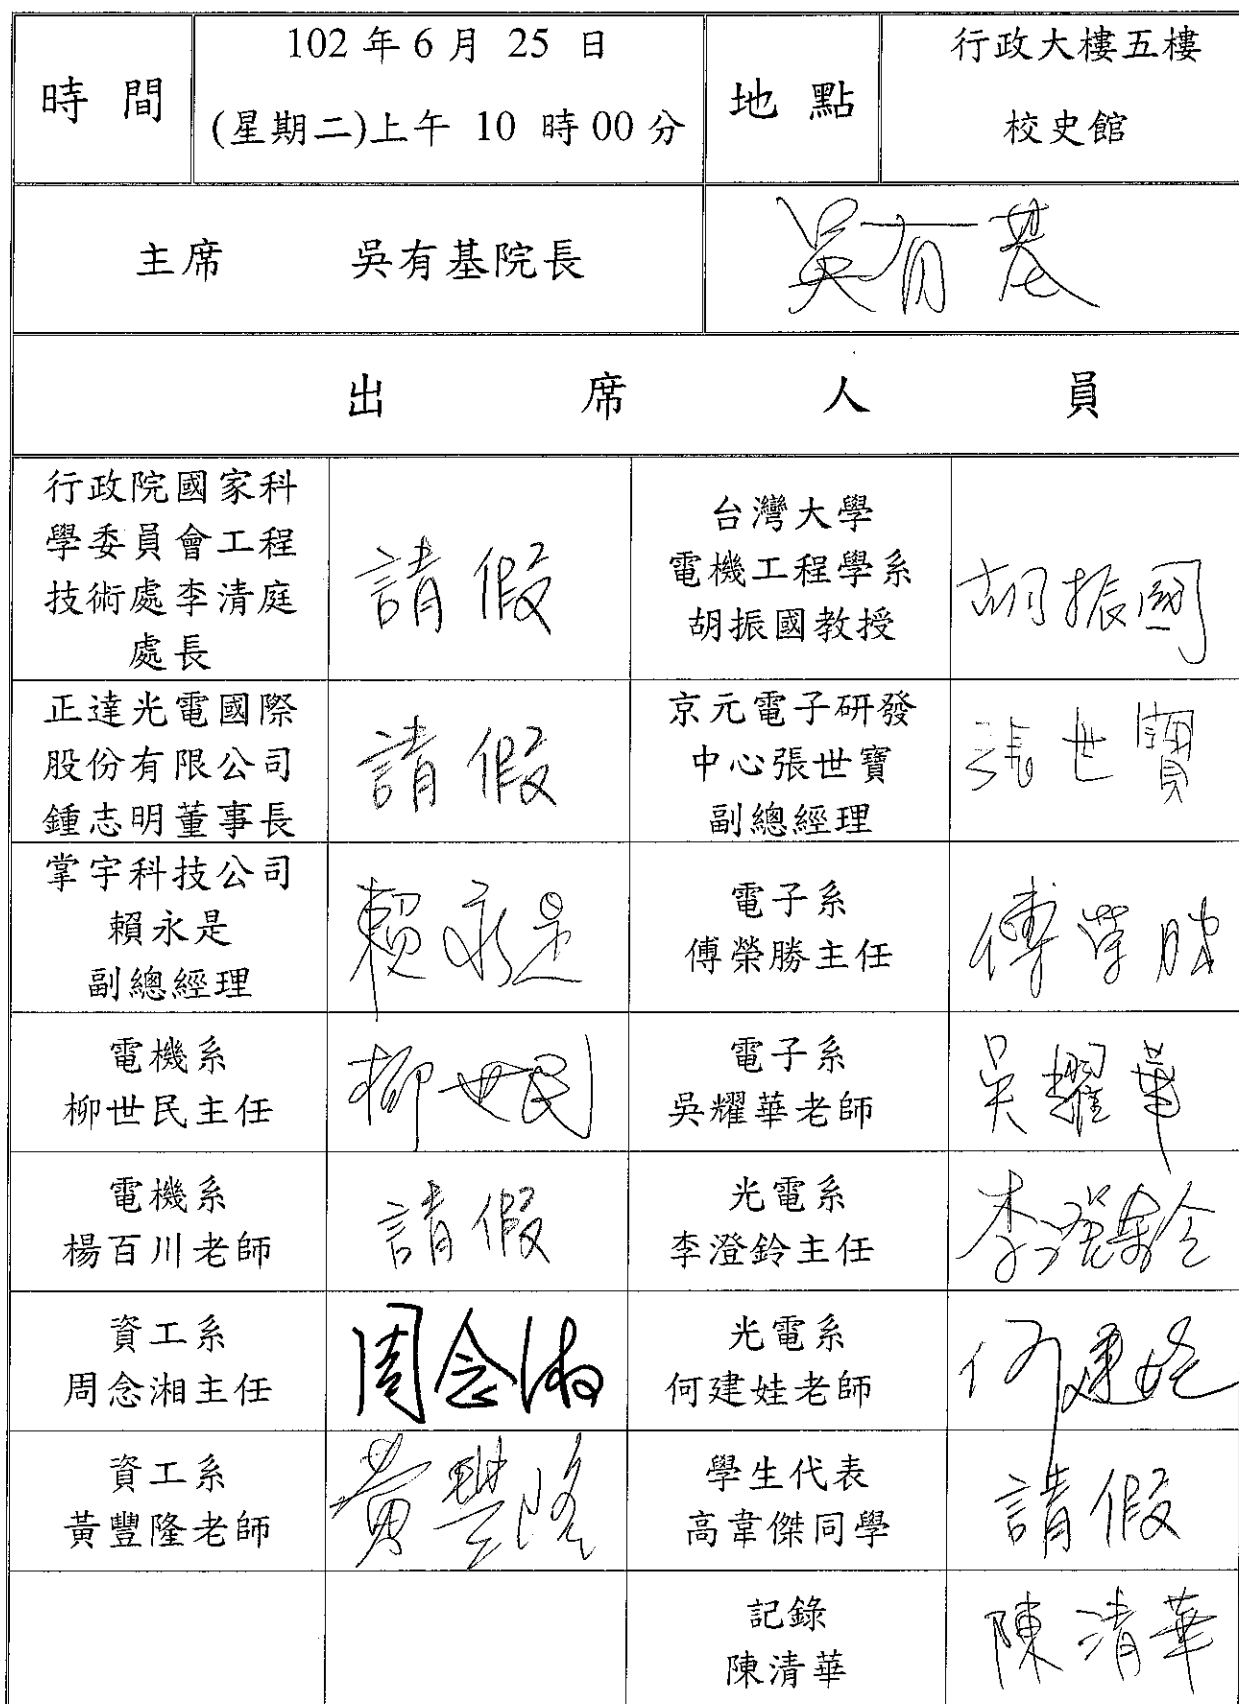 時 間
102 年 6 月 25 日
(星期二)上午 10 時 00 分
地 點
行政大樓五樓
校史館
主席 吳有基院長
吳有基
出 席 人 員
行政院國家科
學委員會工程
技術處李清庭
處長
請假
台灣大學
電機工程學系
胡振國教授
胡振國
正達光電國際
股份有限公司
鍾志明董事長
請假
京元電子研發
中心張世寶
副總經理
張世寶
掌宇科技公司
賴永是
副總經理
賴永是
電子系
傅榮勝主任
傅榮勝
電機系
柳世民主任
柳世民
電子系
吳耀華老師
吳耀華
電機系
楊百川老師
請假
光電系
李澄鈴主任
李澄鈴
資工系
周念湘主任
周念湘
光電系
何建娃老師
何建娃
資工系
黃豐隆老師
黃豐隆
學生代表
高韋傑同學
請假
記錄
陳清華
陳清華